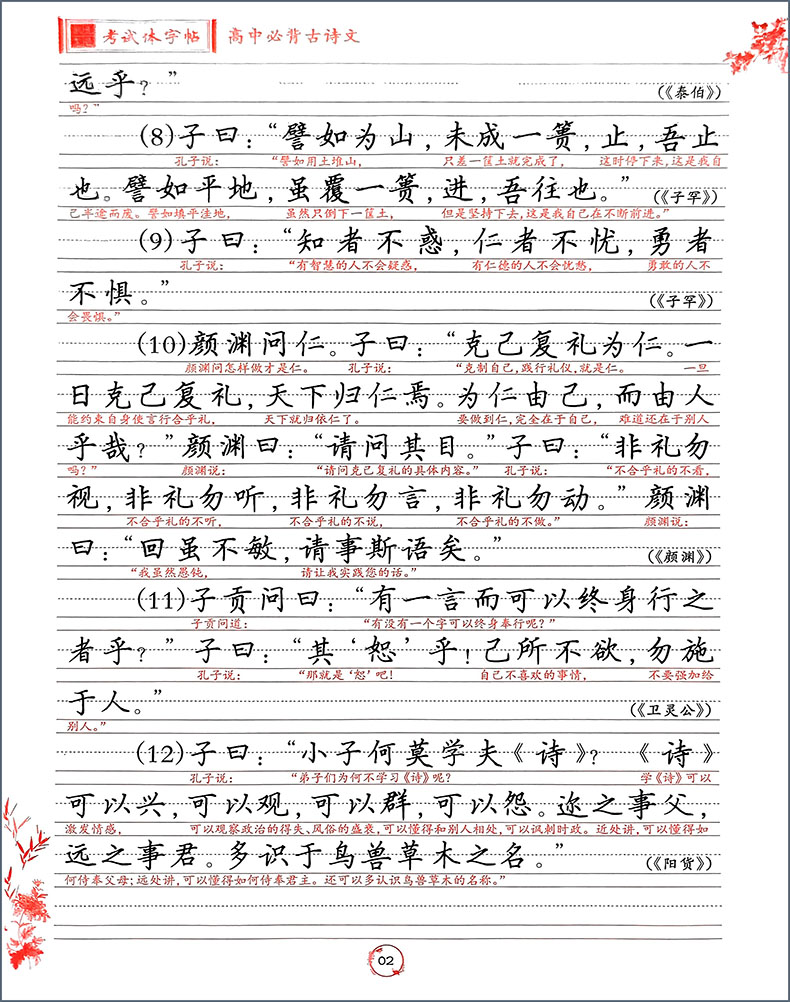 考试体字帖 高中必背古诗文
远乎？” (《泰伯》)
吗？”
(8)子曰：“譬如为山，未成一篑，止，吾止
孔子说： “譬如用土堆山， 只差一筐土就完成了， 这时停下来，这是我自
也。譬如平地，虽覆一篑，进，吾往也。” (《子罕》)
己半途而废。譬如填平洼地， 虽然只倒下一筐土， 但是坚持下去，这是我自己在不断前进。”
(9)子曰：“知者不惑，仁者不忧，勇者
孔子说： “有智慧的人不会疑惑， 有仁德的人不会忧愁， 勇敢的人不
不惧。” (《子罕》)
会畏惧。”
(10)颜渊问仁。子曰：“克己复礼为仁。一
颜渊问怎样做才是仁。 孔子说： “克制自己，践行礼仪，就是仁。 一旦
日克己复礼，天下归仁焉。为仁由己，而由人
能约束自身使言行合乎礼， 天下就归依仁了。 要做到仁，完全在于自己， 难道还在于别人
乎哉？”颜渊曰：“请问其目。”子曰：“非礼勿
吗？” 颜渊说： “请问克己复礼的具体内容。” 孔子说： “不合乎礼的不看，
视，非礼勿听，非礼勿言，非礼勿动。”颜渊
不合乎礼的不听， 不合乎礼的不说， 不合乎礼的不做。” 颜渊说：
曰：“回虽不敏，请事斯语矣。” (《颜渊》)
“我虽然愚钝， 请让我实践您的话。”
(11)子贡问曰：“有一言而可以终身行之
子贡问道： “有没有一个字可以终身奉行呢？”
者乎？”子曰：“其‘恕’乎！己所不欲，勿施
孔子说： “那就是‘恕’吧！ 自己不喜欢的事情， 不要强加给
于人。” (《卫灵公》)
别人。”
(12)子曰：“小子何莫学夫《诗》？《诗》
孔子说： “弟子们为何不学习《诗》呢？ 学《诗》可以
可以兴，可以观，可以群，可以怨。迩之事父，
激发情感， 可以观察政治的得失、风俗的盛衰，可以懂得和别人相处，可以讽刺时政。近处讲，可以懂得如
远之事君。多识于鸟兽草木之名。” (《阳货》)
何侍奉父母；远处讲，可以懂得如何侍奉君主。还可以多认识鸟兽草木的名称。”
02